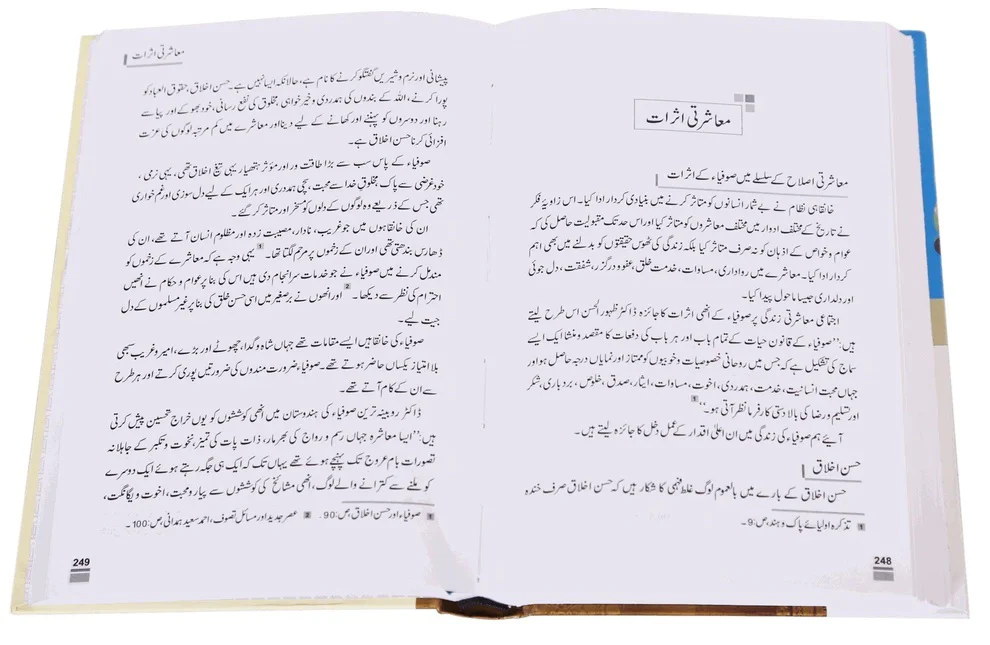 معاشرتی اثرات
معاشرتی اصلاح کے سلسلے میں صوفیاء کے اثرات
خانقاہی نظام نے بے شمار انسانوں کو متاثر کرنے میں بنیادی کردار ادا کیا۔ اس زاویہ فکر
نے تاریخ کے مختلف ادوار میں مختلف معاشروں کو متاثر کیا اور اس حد تک مقبولیت حاصل کی کہ
عوام و خواص کے اذہان کو نہ صرف متاثر کیا بلکہ زندگی کی ٹھوس حقیقتوں کو بدلنے میں بھی اہم
کردار ادا کیا۔ معاشرے میں رواداری، مساوات، خدمت خلق، عفو و درگزر، شفقت، دل جوئی
اور دلداری جیسا ماحول پیدا کیا۔
اجتماعی معاشرتی زندگی پر صوفیاء کے انھی اثرات کا جائزہ ڈاکٹر ظہور الحسن اس طرح لیتے
ہیں: ”صوفیاء کے قانون حیات کے تمام باب اور ہر باب کی دفعات کا مقصد و منشا ایک ایسے
سماج کی تشکیل ہے کہ جس میں روحانی خصوصیات و خوبیوں کو ممتاز اور نمایاں درجہ حاصل ہو اور
جہاں محبت انسانیت، خدمت، ہمدردی، اخوت، مساوات، ایثار، صدق، خلوص، بردباری، شکر
اور تسلیم و رضا کی بالا دستی کارفرما نظر آتی ہو۔“ 1
آیئے ہم صوفیاء کی زندگی میں ان اعلیٰ اقدار کے عمل دخل کا جائزہ لیتے ہیں۔
حسن اخلاق
حسن اخلاق کے بارے میں بالعموم لوگ غلط فہمی کا شکار ہیں کہ حسن اخلاق صرف خندہ
1 تذکرہ اولیائے پاک و ہند، ص: 9۔
248
معاشرتی اثرات
پیشانی اور نرم و شیریں گفتگو کرنے کا نام ہے، حالانکہ ایسا نہیں ہے۔ حسن اخلاق، حقوق العباد کو
پورا کرنے، اللہ کے بندوں کی ہمدردی و خیر خواہی، مخلوق کی نفع رسانی، خود بھوکے اور پیاسے
رہنا اور دوسروں کو پہننے اور کھانے کے لیے دینا اور معاشرے میں کم مرتبہ لوگوں کی عزت
افزائی کرنا حسن اخلاق ہے۔
صوفیاء کے پاس سب سے بڑا طاقت ور اور مؤثر ہتھیار یہی تیغ اخلاق تھی، یہی نرمی،
خود غرضی سے پاک مخلوقِ خدا سے محبت، سچی ہمدردی اور ہر ایک کے لیے دل سوزی اور غم خواری
تھی جس کے ذریعے وہ لوگوں کے دلوں کو مسخر اور متاثر کر گئے۔
ان کی خانقاہوں میں جو غریب، نادار، مصیبت زدہ اور مظلوم انسان آتے تھے، ان کی
ڈھارس بندھتی تھی اور ان کے زخموں پر مرہم لگتا تھا۔ 1 یہی وجہ ہے کہ معاشرے کے زخموں کو
مندمل کرنے میں صوفیاء نے جو خدمات سرانجام دی ہیں اس کی بنا پر عوام و حکام نے انھیں
احترام کی نظر سے دیکھا۔ 2 اور انھوں نے برصغیر میں اسی حسن خلق کی بنا پر غیر مسلموں کے دل
جیت لیے۔
صوفیاء کی خانقاہیں ایسے مقامات تھے جہاں شاہ و گدا، چھوٹے اور بڑے، امیر و غریب سبھی
بلا امتیاز یکساں حاضر ہوتے تھے۔ صوفیاء ضرورت مندوں کی ضرورتیں پوری کرتے اور ہر طرح
سے ان کے کام آتے تھے۔
ڈاکٹر روبینہ ترین صوفیاء کی ہندوستان میں انھی کوششوں کو یوں خراج تحسین پیش کرتی
ہیں: ”ایسا معاشرہ جہاں رسم و رواج کی بھرمار، ذات پات کی تمیز، نخوت و تکبر کے جاہلانہ
تصورات بام عروج تک پہنچے ہوئے تھے یہاں تک کہ ایک ہی جگہ رہتے ہوئے ایک دوسرے
کو ملنے سے کترانے والے لوگ، انھی مشائخ کی کوششوں سے پیار و محبت، اخوت و یگانگت،
1 صوفیاء اور حسن اخلاق، ص: 90۔ 2 عصر جدید اور مسائل تصوف، احمد سعید ہمدانی، ص: 100۔
249